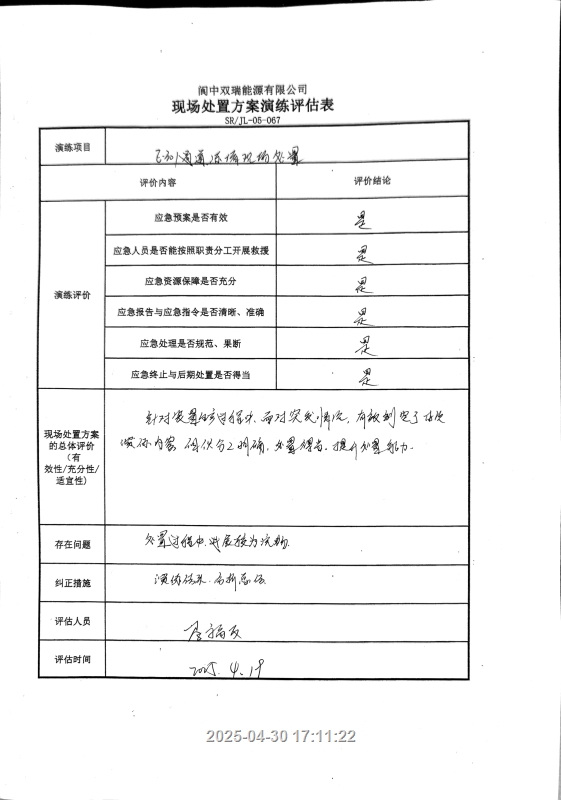 阆中双瑞能源有限公司
现场处置方案演练评估表
SR/JL-05-067
演练项目
管道冻堵现场处置
评价内容 评价结论
演练评价
应急预案是否有效 是
应急人员是否能按照职责分工开展救援 是
应急资源保障是否充分 是
应急报告与应急指令是否清晰、准确 是
应急处理是否规范、果断 是
应急终止与后期处置是否得当 是
现场处置方案
的总体评价
（有
效性/充分性/
适宜性）
针对装置生产过程中,面对突发情况,有效制定了
演练内容 分工明确,处置得当。提升处置能力.
存在问题 处置过程中,开展较为流畅.
纠正措施 演练结束,分析总结
评估人员
评估时间 2025.4.19
2025-04-30 17:11:22